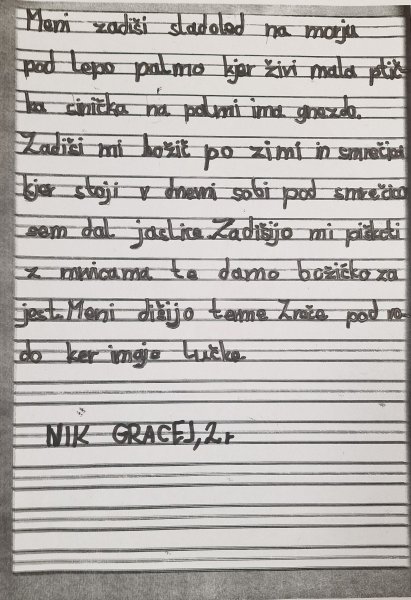 Meni zadiši sladoled na morju
pod lepo palmo kjer živi mala ptič-
ka cinička na palmi ima gnezdo.
Zadiši mi božič po zimi in smrečica
kjer stoji v dnevni sobi pod smrečico
sem dal jaslice. Zadišijo mi piškoti
z mrvicama te damo božičko za
jest. Meni dišijo temne pod vo-
do ker imajo lučke
NIK GRACEJ, 2. r